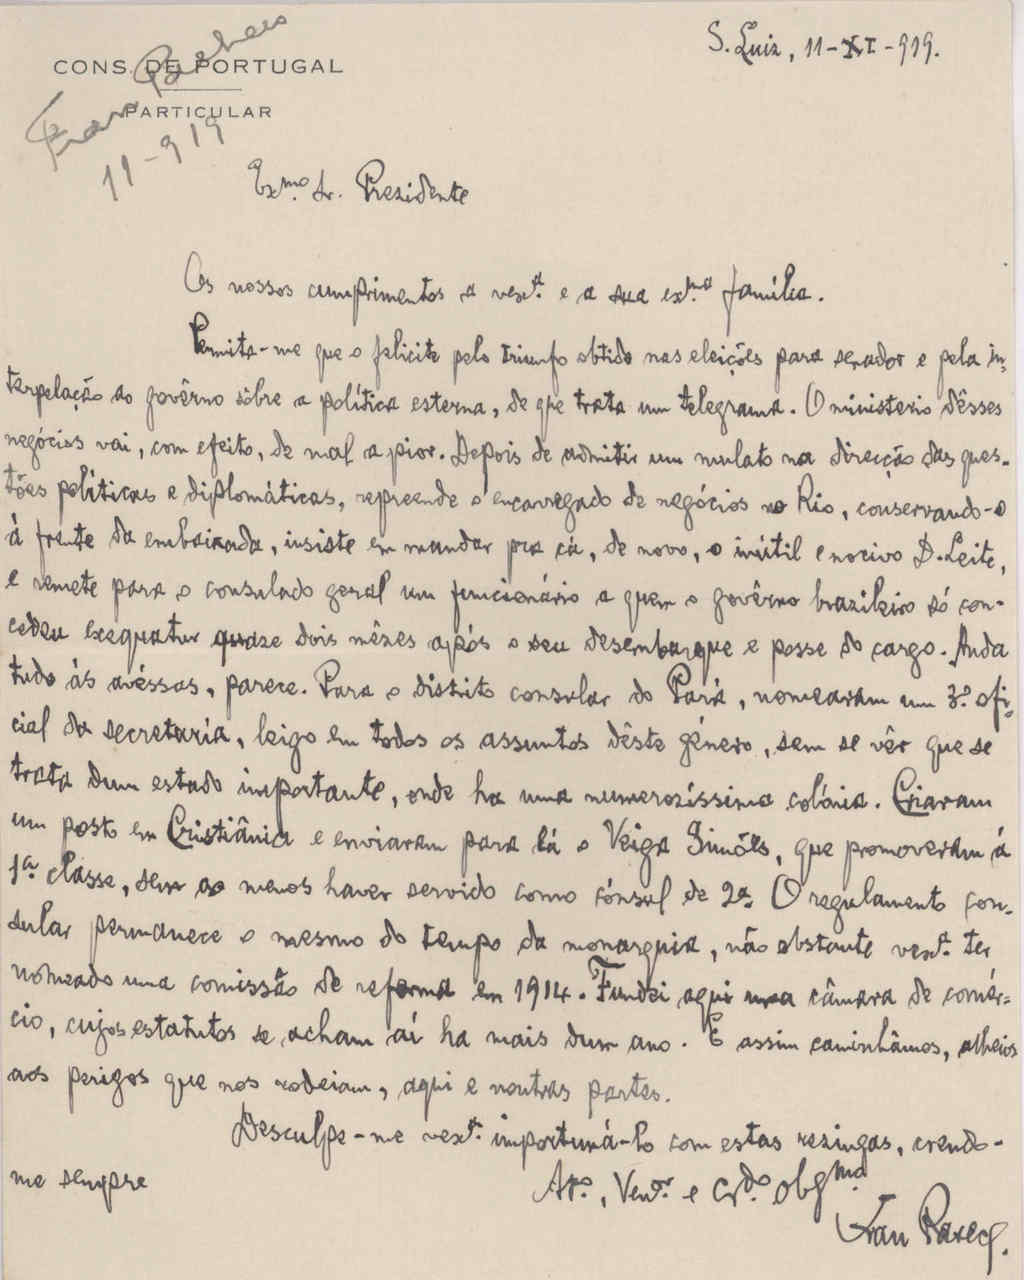 S. Luiz, 11-XI-919.
CONS. DE PORTUGAL
PARTICULAR
Fran Pacheco
11-919
Exmo. Sr. Prezidente
Os nossos cumprimentos a vexª. e a sua exmª família.
Permita-me que o felicite pelo triunfo obtido nas eleições para senador e pela in-
terpelação ao govêrno sôbre a política esterna, de que trata um telegrama. O ministerio dêsses
negócios vai, com efeito, de mal a pior. Depois de admitir um mulato na direcção das ques-
tões políticas e diplomáticas, repreende o encarregado de negócios no Rio, conservando-o
à frente da embaixada, insiste em mandar pra cá, de novo, o inútil e nocivo D. Leite,
e remete para o consulado geral um funcionário a quem o govêrno brazileiro só con-
cedeu exequatur quaze dois mêzes após o seu desembarque e posse do cargo. Anda
tudo às avéssas, parece. Para o distrito consular do Pará, nomearam um 3º. ofi-
cial da secretaría, leigo em todos os assuntos dêste género, sem se vêr que se
trata dum estado importante, onde ha uma numerozíssima colónia. Criaram
um posto em Cristiânia e enviaram para lá o Veiga Simões, que promoveram á
1ª. classe, sem ao menos haver servido como cônsul de 2ª. O regulamento con-
sular permanece o mesmo do tempo da monarquia, não obstante vexª. ter
nomeado uma comissão de reforma em 1914. Fundei aqui uma câmara de comér-
cio, cujos estatutos se acham aí ha mais dum ano. E assim caminhâmos, alheios
aos perigos que nos rodeiam, aqui e noutras partes.
Desculpe-me vexª. importuná-lo com estas rezingas, crendo-
me sempre
Atº., Venºr. e Crdº. obgmo
Fran Paxeco.